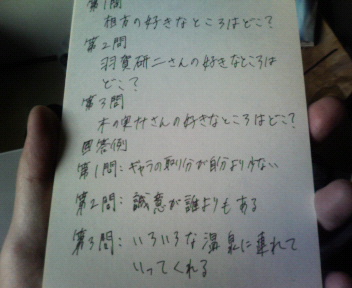 第1問
相方の好きなところはどこ?
第2問
羽賀研二さんの好きなところは
どこ?
第3問
木の実ナナさんの好きなところはどこ?
回答例
第1問:ギャラの取り分が自分より少ない
第2問:誠意が誰よりもある
第3問:いろいろな温泉に連れて
いってくれる